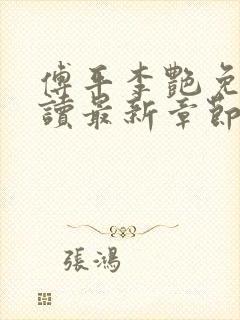 傅平李艷免
讀最新章節
張鴻